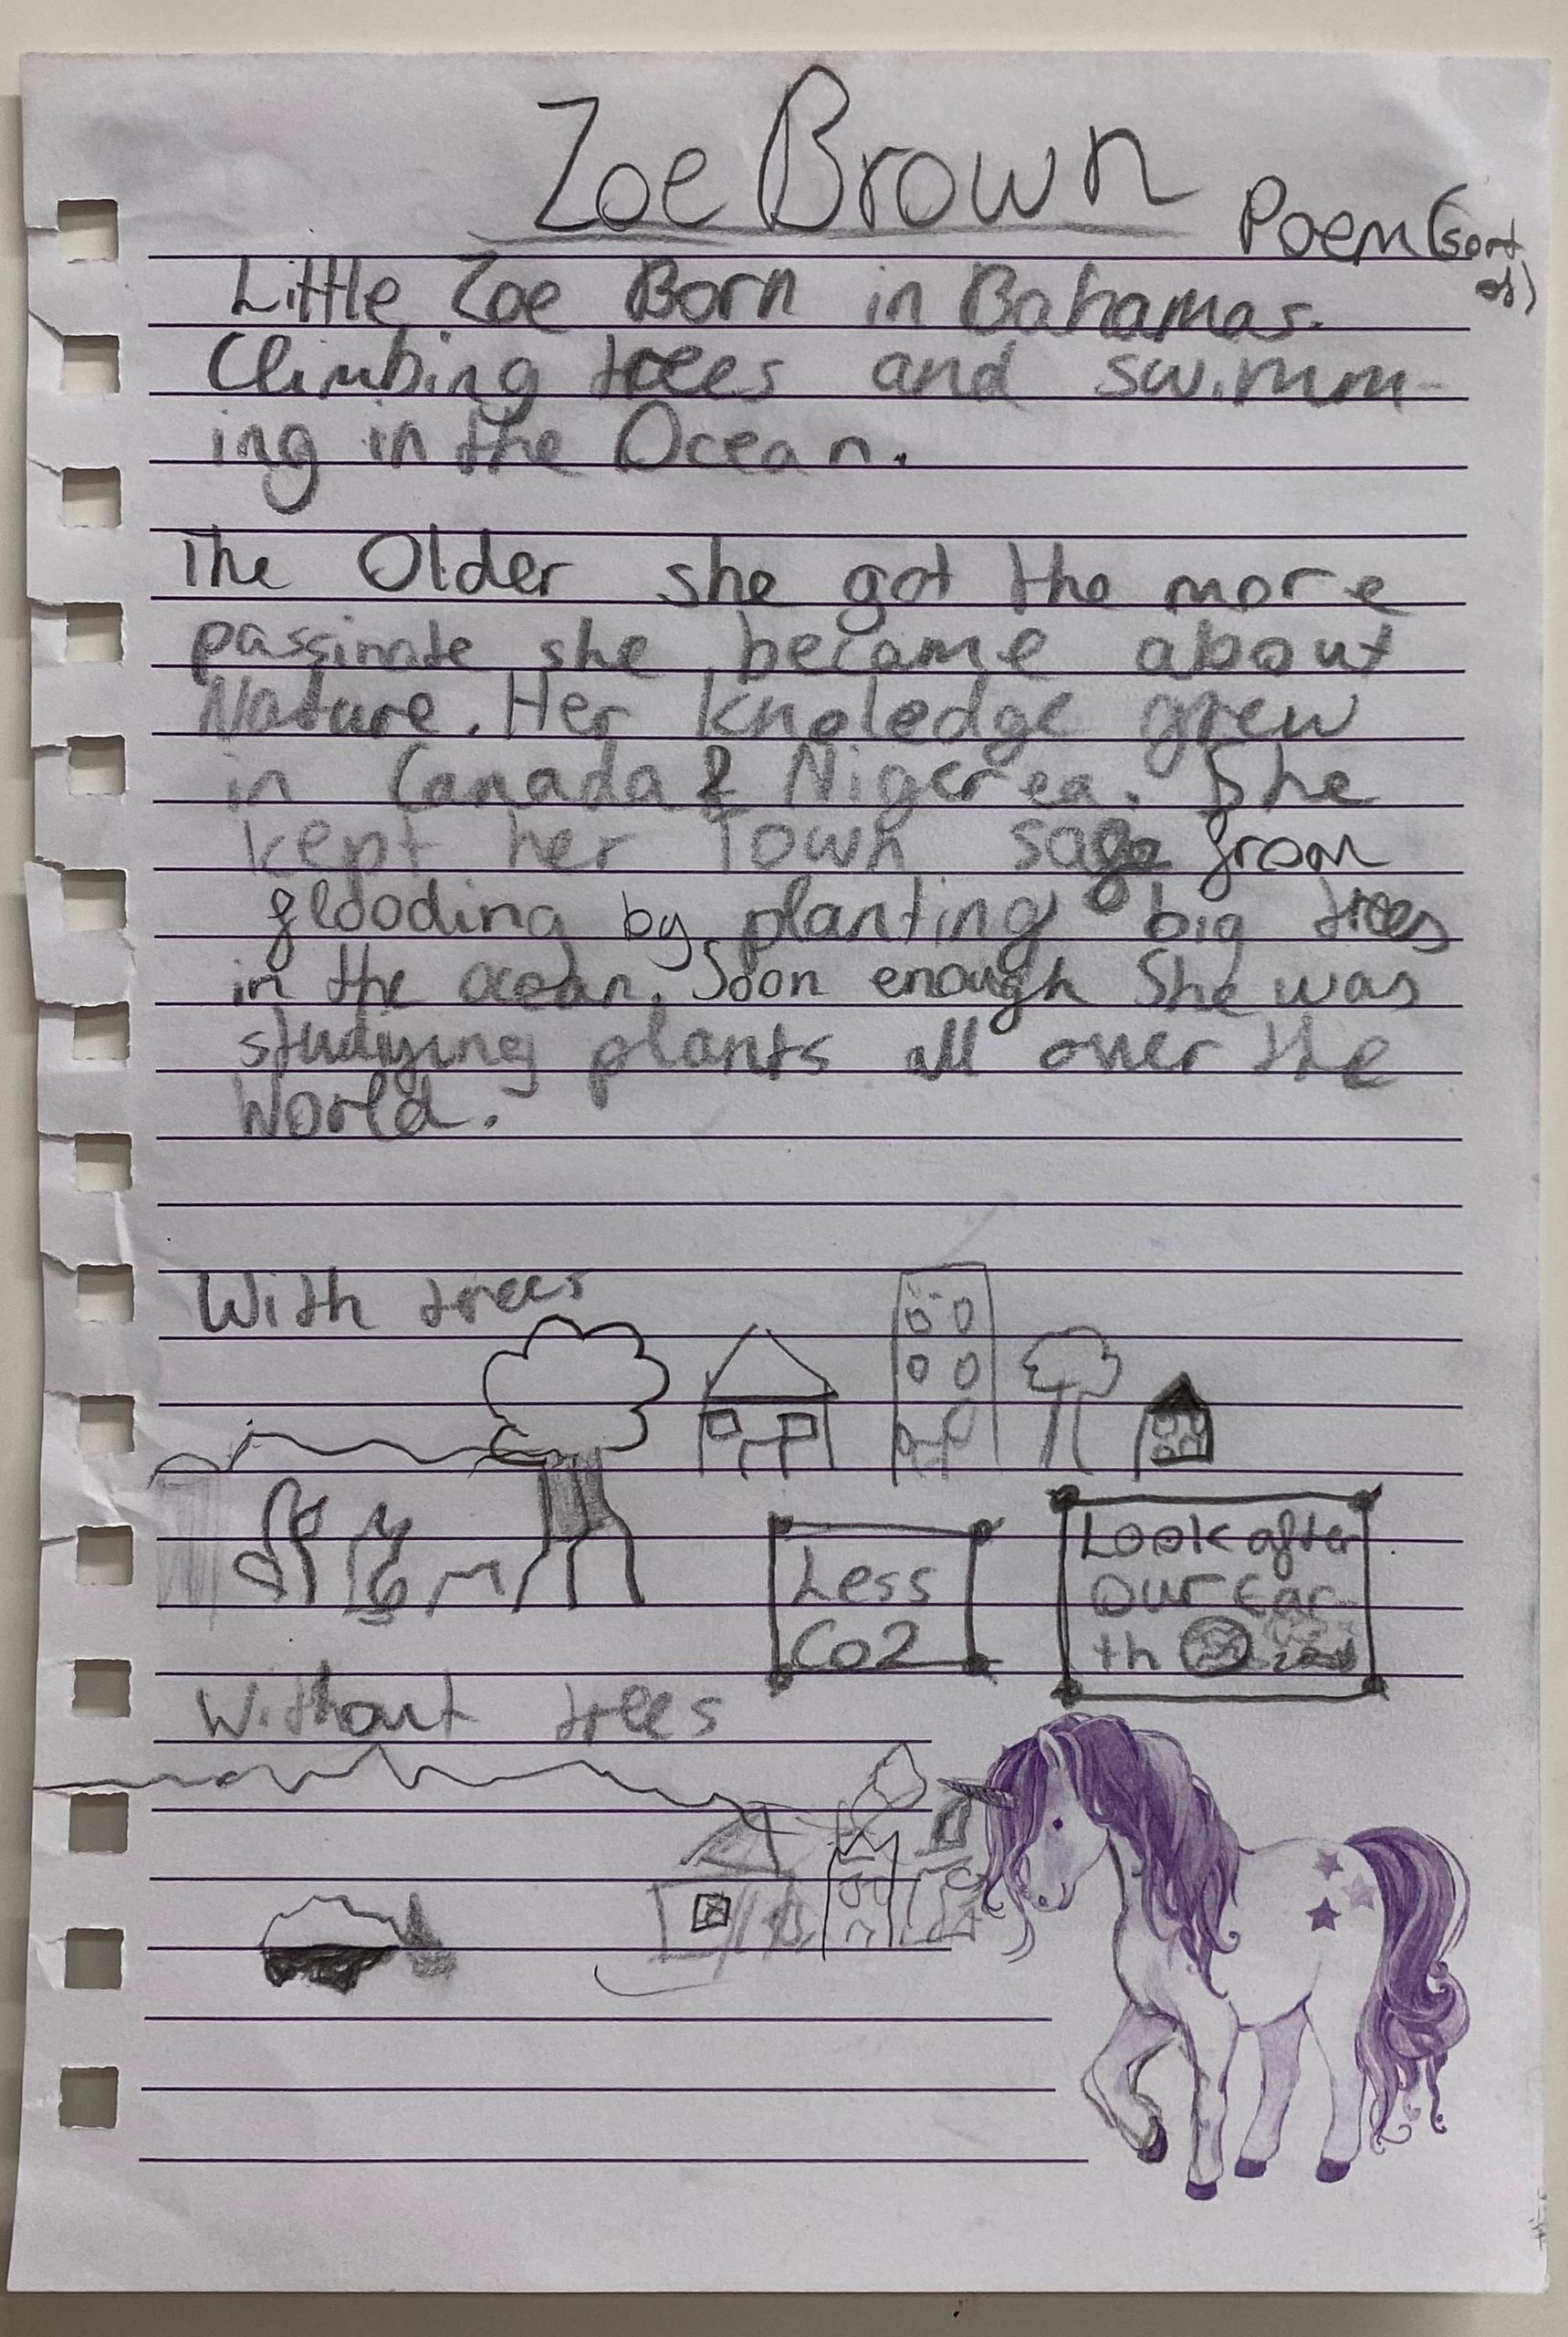 Zoe Brown
Poem (sort
of)
Little Zoe Born in Bahamas.
Climbing trees and swimm-
ing in the Ocean.
The Older she got the more
passinate she became about
Nature. Her knoledge grew
in Canada & Nigerea. She
kept her Town safe from
flooding by planting big trees
in the ocean. Soon enough She was
studying plants all over the
World.
With trees
Less
Co2
Look after
our Ear-
th
Without trees